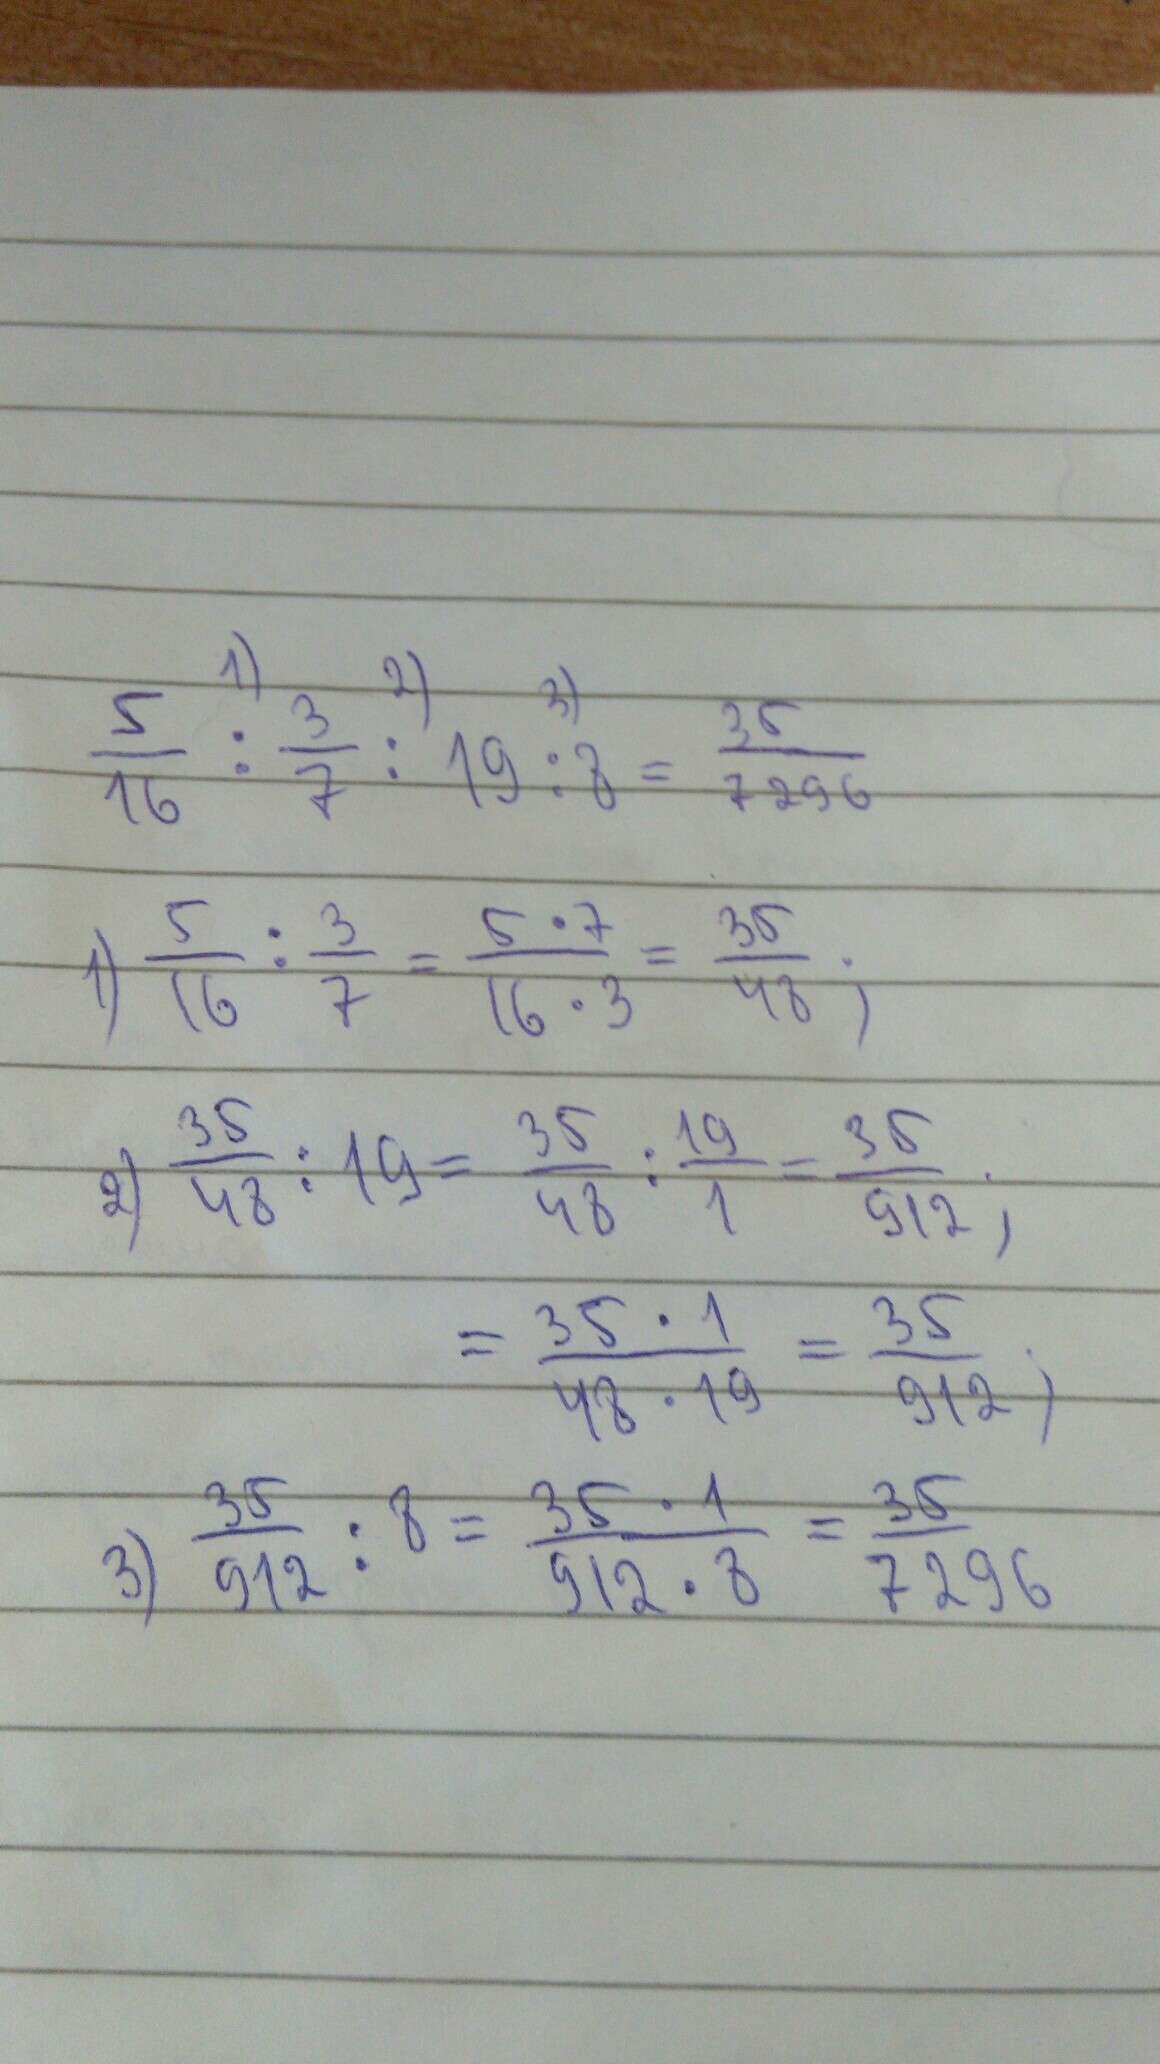 1) 2) 3)
5/16 : 3/7 : 19 : 8 = 35/7296
1) 5/16 : 3/7 = 5·7/16·3 = 35/48 ;
2) 35/48 : 19 = 35/48 : 19/1 = 35/912 ;
= 35·1/48·19 = 35/912 ;
3) 35/912 : 8 = 35·1/912·8 = 35/7296